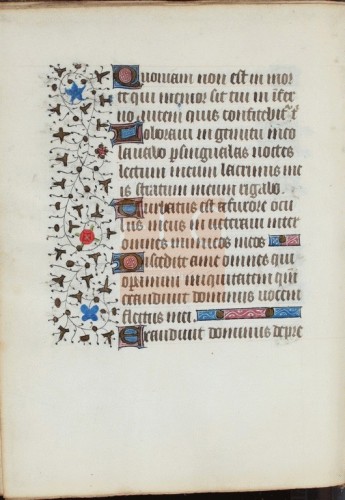 Quoniam non est in mor
te qui memor sit tui in īfer
no autem quis confitebit͛ t
Laboraui in gemitu meo
lauabo ꝑ singulas noctes
lectum meum lacrimis me
is stratum meum rigabo.
Turbatus est a furore ocu
lus meus inueteraui inter
omnes inimicos meos
Discedite a me omnes qui
operamini iniquitatem qm̄
exaudiuit dominus uocem
fletus mei.
Exaudiuit dominus depre